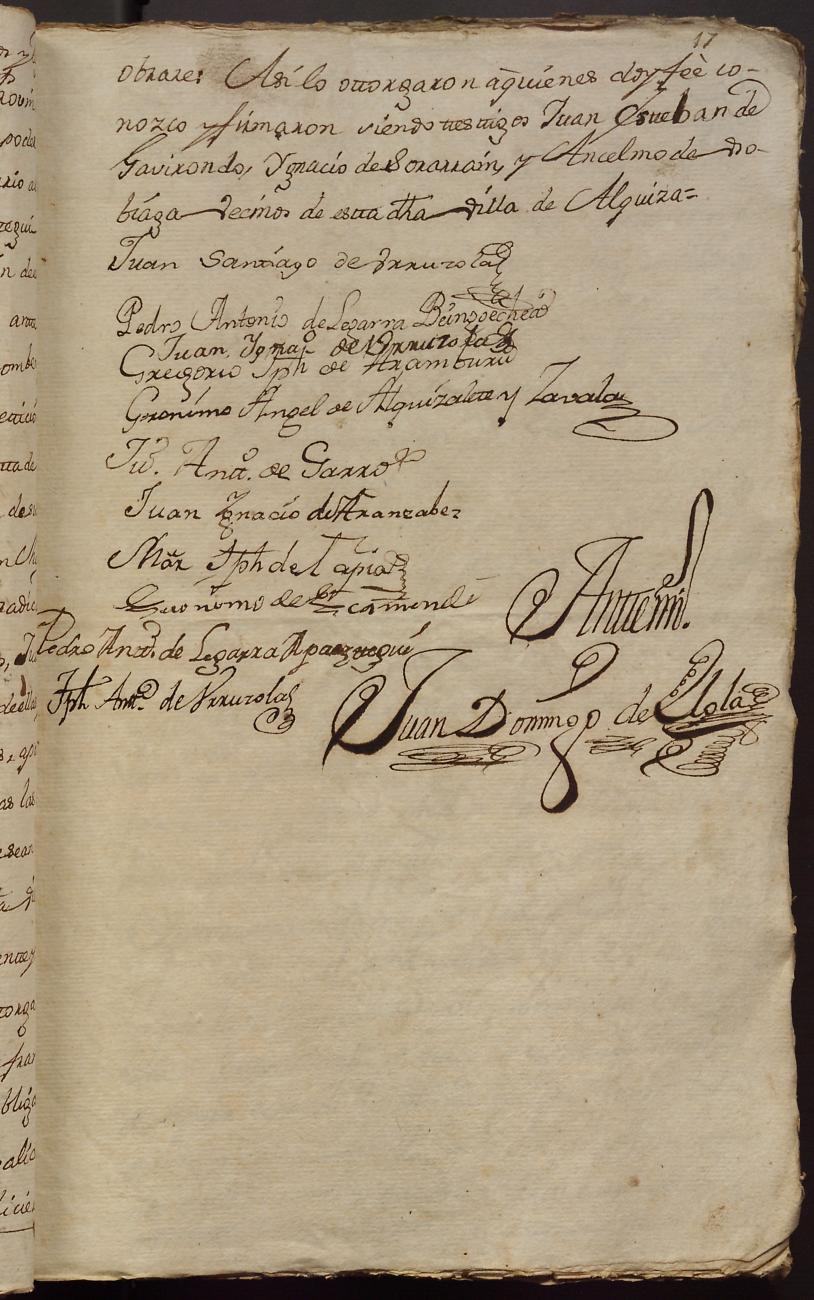 17
obrare: Asi lo ottorgaron aquienes doy feè co-
nozco y firmaron siendo testtigos Juan Estevan de
Gavirondo, Ygnacio de Sorarrain, y Ancelmo de
biaga vecinos de estta dha villa de Alquiza=
Juan Santiago de Urruzola
Pedro Antonio de Legarra Beingoechea
Juan Ignaº de Urruzola
Gregorio Jph de Aramburu
Geronimo Angel de Alquizalete y Zavala
Juº. Antt. de Garro
Juan Ignacio de Aranzabe
Mar Jph de Tapia
Geronimo de
Pedro Antº de Legarra Apaezegui
Jph Antº de Urruzola
Antte mi.
Juan Domingo de